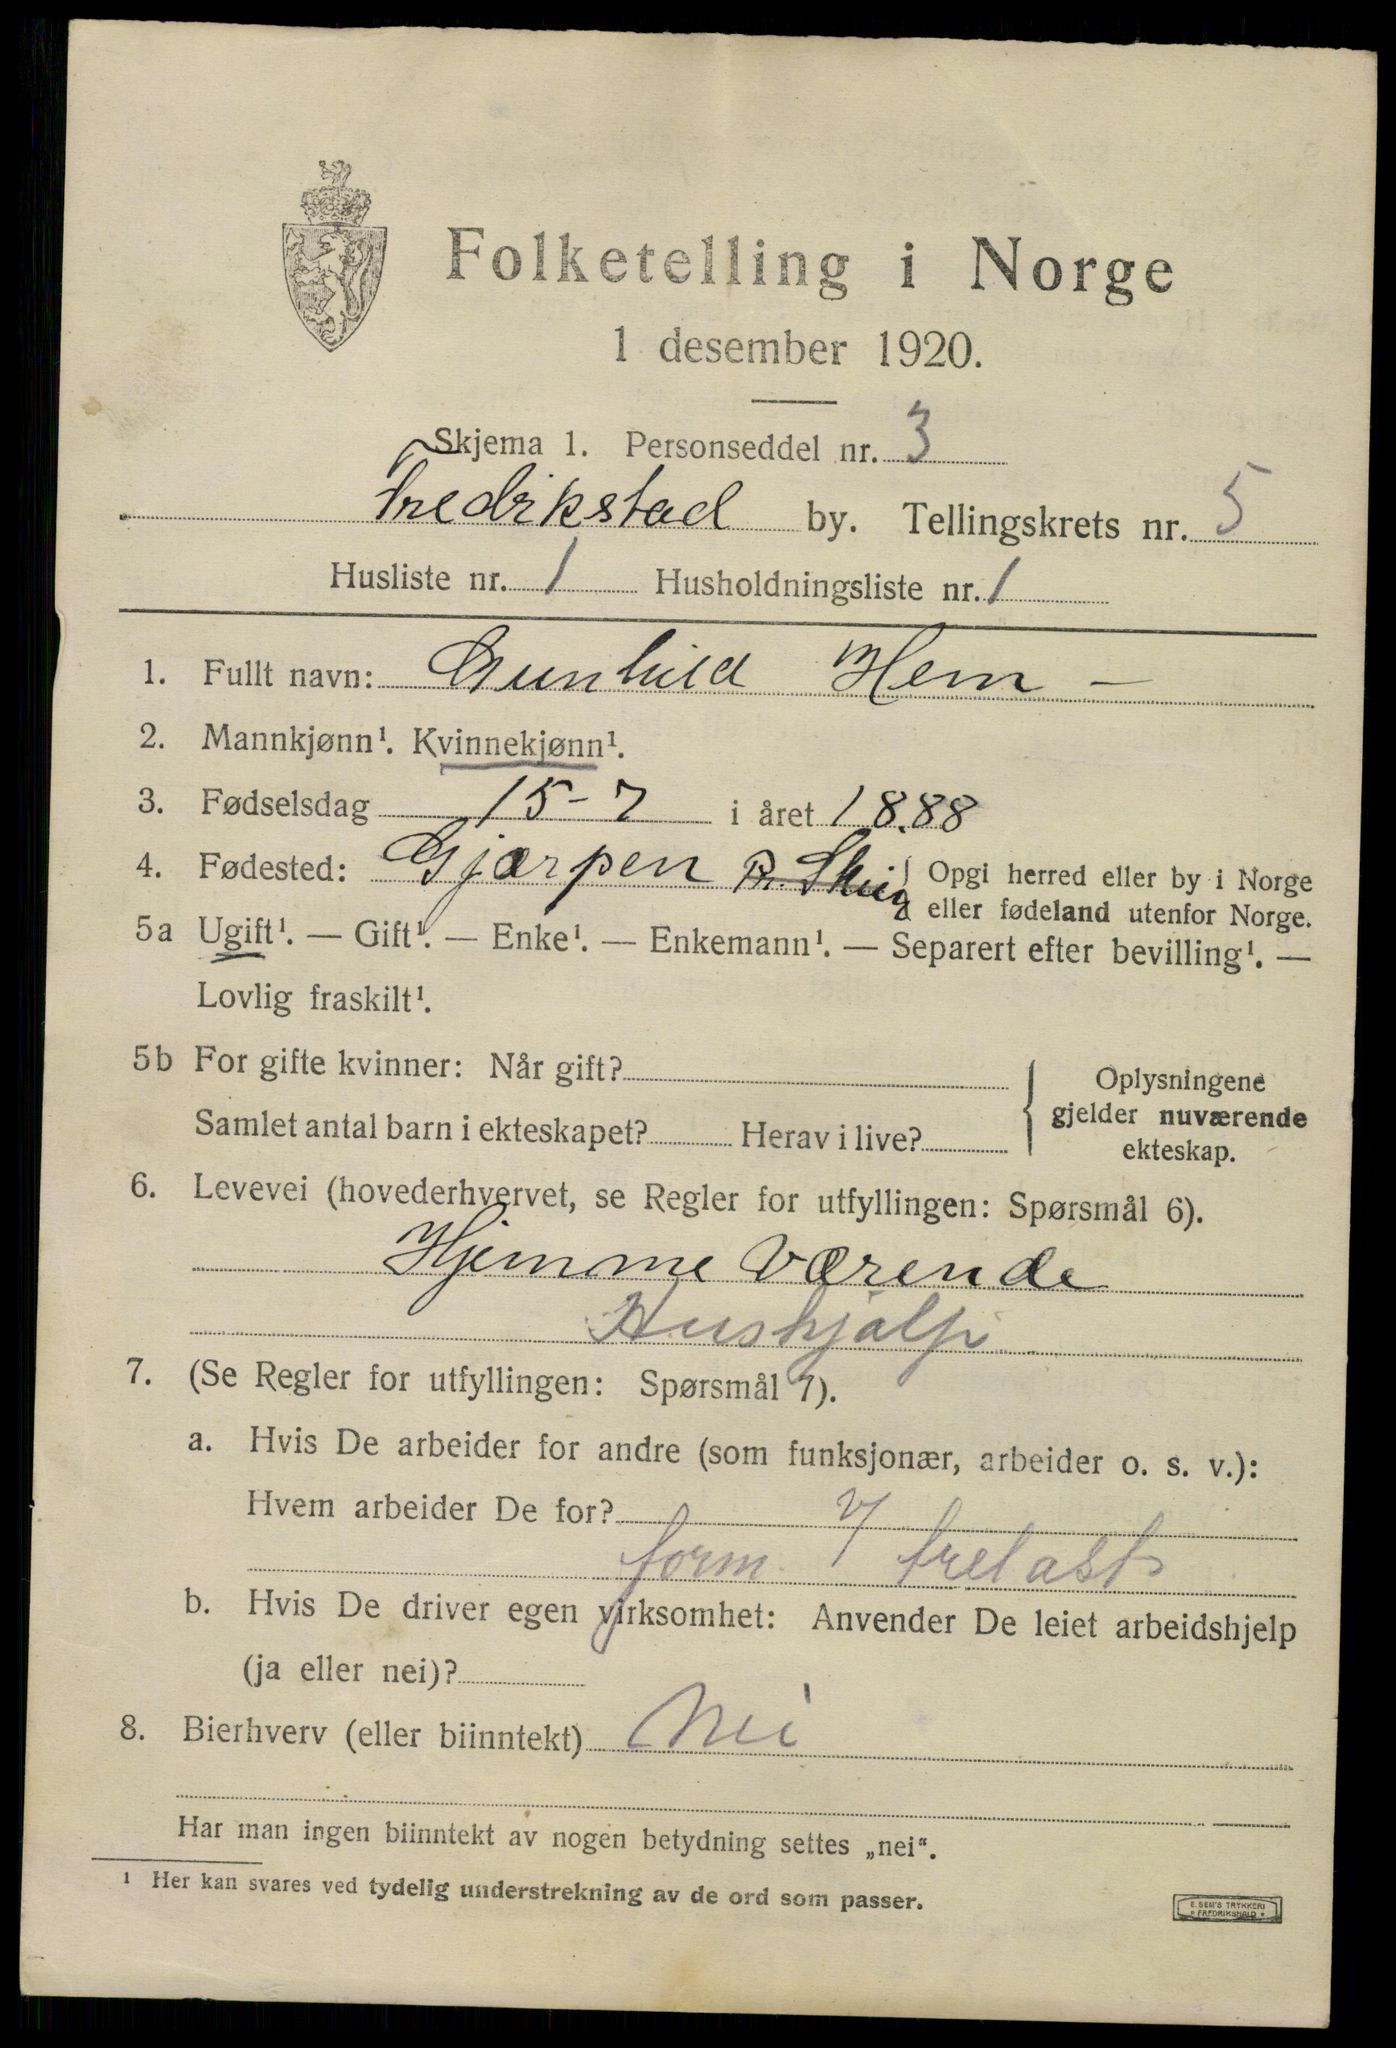 Folketelling i Norge
1 desember 1920.
Skjema 1. Personseddel nr. 3
Fredrikstad by. Tellingskrets nr. 5
Husliste nr. 1 Husholdningsliste nr. 1
1. Fullt navn: Gunhild Hem —
2. Mannkjønn¹. Kvinnekjønn¹.
3. Fødselsdag 15-7 i året 1888
4. Fødested: Gjærpen Pr. Skien Opgi herred eller by i Norge
eller fødeland utenfor Norge.
5a Ugift¹. — Gift¹. — Enke¹. — Enkemann¹. — Separert efter bevilling¹. —
Lovlig fraskilt¹.
5b For gifte kvinner: Når gift?
Samlet antal barn i ekteskapet? Herav i live?
Oplysningene
gjelder nuværende
ekteskap.
6. Levevei (hovederhvervet, se Regler for utfyllingen: Spørsmål 6).
Hjemme værende
Hushjælp
7. (Se Regler for utfyllingen: Spørsmål 7).
a. Hvis De arbeider for andre (som funksjonær, arbeider o. s. v.):
Hvem arbeider De for?
form. trelast
b. Hvis De driver egen virksomhet: Anvender De leiet arbeidshjelp
(ja eller nei)?
8. Bierhverv (eller biinntekt) Nei
Har man ingen biinntekt av nogen betydning settes „nei“.
¹ Her kan svares ved tydelig understrekning av de ord som passer.
E. SEM'S TRYKKERI
FREDRIKSHALD